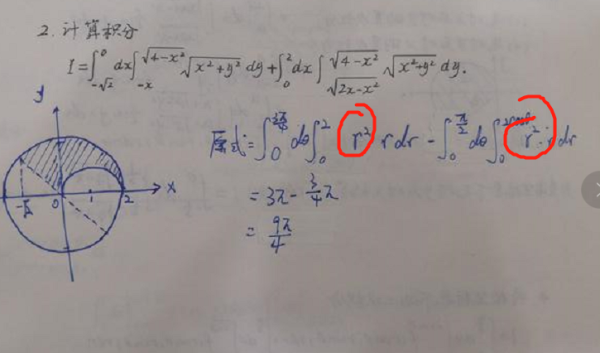 2. 计算积分
I=∫_{-√2}^{0} dx∫_{-x}^{√(4-x²)} √(x²+y²) dy+∫_{0}^{2} dx∫_{√(2x-x²)}^{√(4-x²)} √(x²+y²) dy.
原式=∫_{0}^{3π/4} dθ∫_{0}^{2} r² r dr - ∫_{0}^{π/2} dθ∫_{0}^{2cosθ} r²·r dr
=3π-3/4π
=9π/4
y
-√2 0 1 2 x